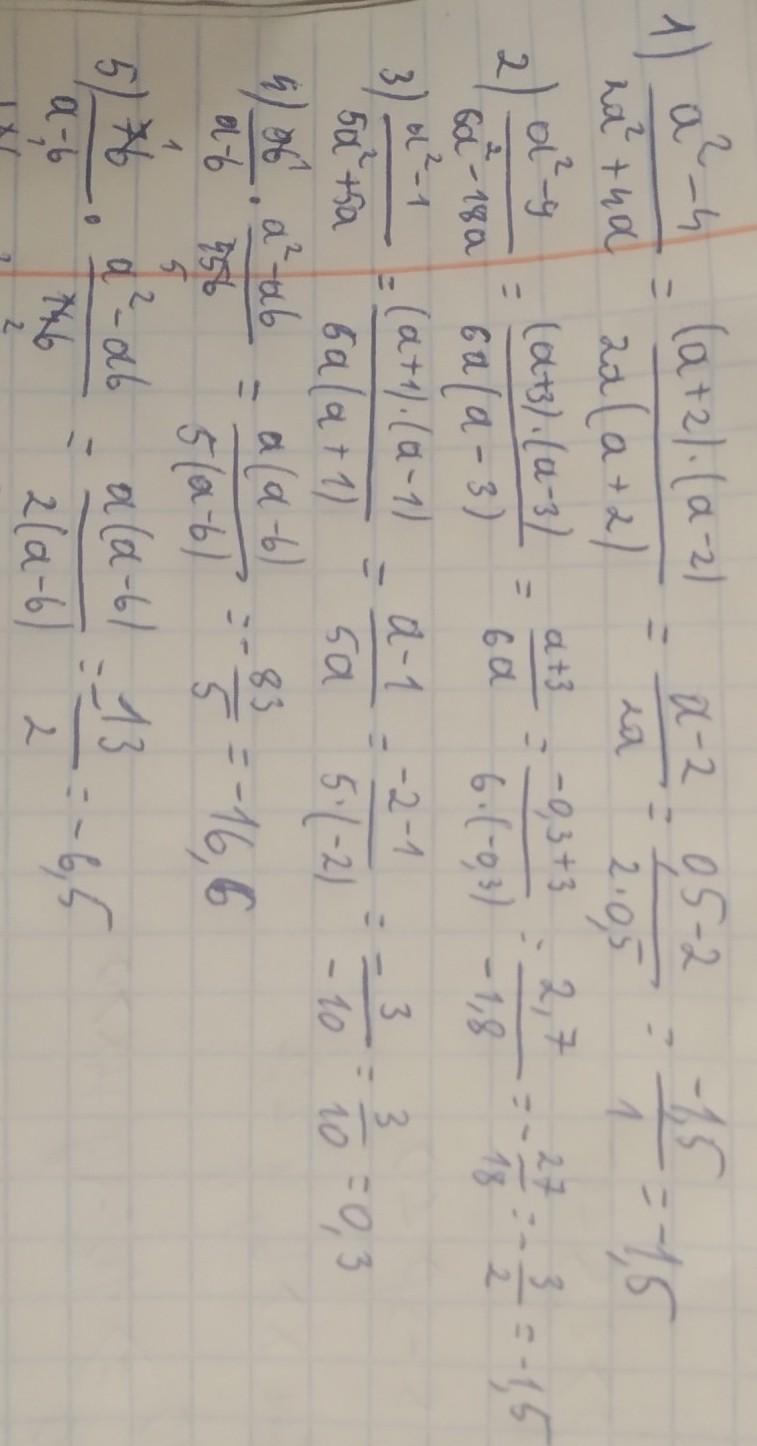 1) a²-4/2a²+4a = (a+2)·(a-2)/2a(a+2) = a-2/2a = 0,5-2/2·0,5 = -1,5/1 = -1,5
2) a²-9/6a²-18a = (a+3)·(a-3)/6a(a-3) = a+3/6a = -0,3+3/6·(-0,3) = 2,7/-1,8 = -27/18 = -3/2 = -1,5
3) a²-1/5a²+5a = (a+1)·(a-1)/5a(a+1) = a-1/5a = -2-1/5·(-2) = -3/-10 = 3/10 = 0,3
4) /a-b · a²-ab/ = a(a-b)/5(a-b) = -83/5 = -16,6
5) 7b/a-b · a²-ab/14b = a(a-b)/2(a-b) = -13/2 = -6,5